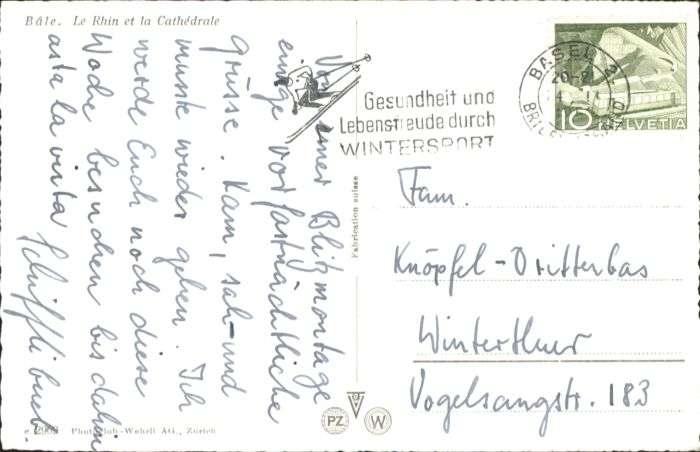 Bâle. Le Rhin et la Cathédrale
Von einer Blitzmontage
einige vorfastnächtliche
grüsse. Kam, sah und
musste wieder gehen. Ich
werde Euch noch diese
Woche besuchen bis dahin
asta la vista
BASEL 2
10 HELVETIA
Gesundheit und
Lebensfreude durch
WINTERSPORT
Fabrication suisse
Fam.
Knöpfel-Dritterbas
Winterthur
Vogelsangstr. 183
PZ
W
Photoglob-Wehrli A.G., Zürich